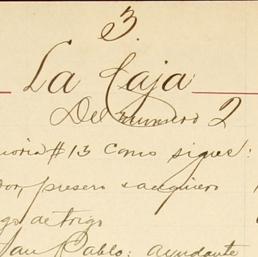 3.
La Caja
Del numero 2
moria #13 como sigue:
dor, presero saquero
go de trigo
San Pablo: ayudante